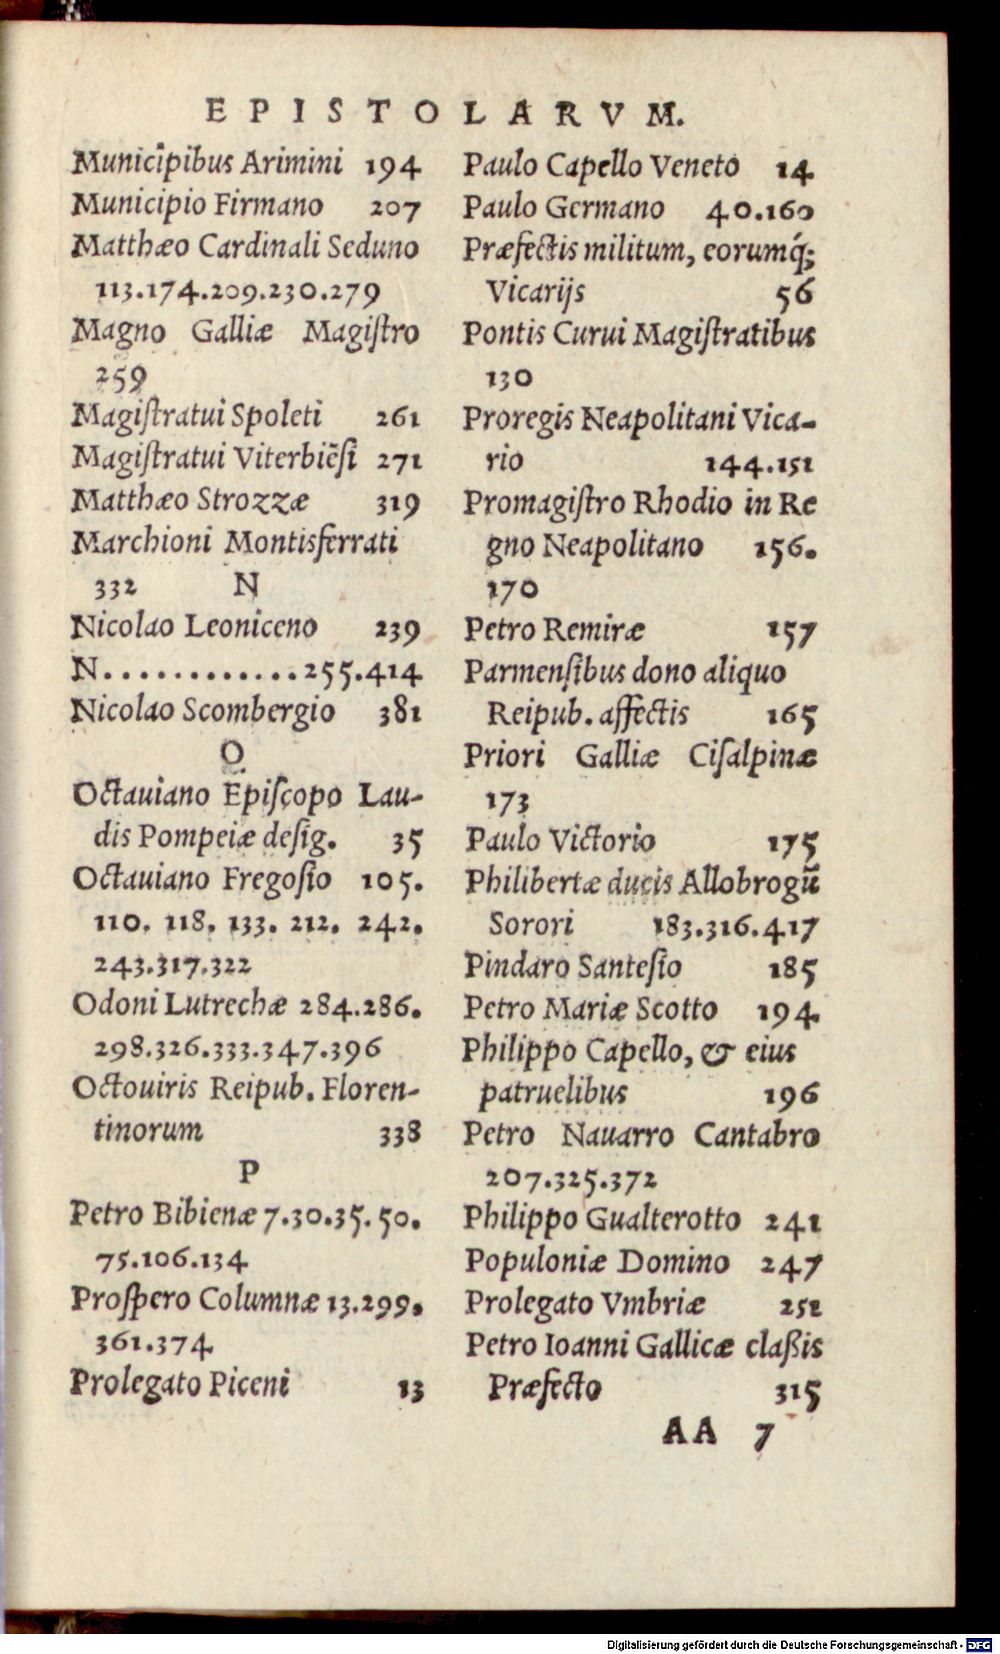 EPISTOLARVM.
Municipibus Arimini 194
Municipio Firmano 207
Matthæo Cardinali Seduno
113.174.209.230.279
Magno Galliæ Magiſtro
259
Magiſtratui Spoleti 261
Magiſtratui Viterbiẽſi 271
Matthæo Strozzæ 319
Marchioni Montisferrati
332 N
Nicolao Leoniceno 239
N............255.414
Nicolao Scombergio 381
O
Octauiano Epiſcopo Lau-
dis Pompeiæ deſig. 35
Octauiano Fregoſio 105.
110. 118. 133. 212. 242.
243.317.322
Odoni Lutrechæ 284.286.
298.326.333.347.396
Octouiris Reipub. Floren-
tinorum 338
P
Petro Bibienæ 7.30.35.50.
75.106.134
Proſpero Columnæ 13.299.
361.374
Prolegato Piceni 13
Paulo Capello Veneto 14
Paulo Germano 40.160
Præfectis militum, eorumq́;
Vicarijs 56
Pontis Curui Magiſtratibus
130
Proregis Neapolitani Vica-
rio 144.151
Promagiſtro Rhodio in Re
gno Neapolitano 156.
170
Petro Remiræ 157
Parmenſibus dono aliquo
Reipub. affectis 165
Priori Galliæ Ciſalpinæ
173
Paulo Victorio 175
Philibertæ ducis Allobrogũ
Sorori 183.316.417
Pindaro Santeſio 185
Petro Mariæ Scotto 194
Philippo Capello, & eius
patruelibus 196
Petro Nauarro Cantabro
207.325.372
Philippo Gualterotto 241
Populoniæ Domino 247
Prolegato Vmbriæ 251
Petro Ioanni Gallicæ claßis
Præfecto 315
AA 7
Digitalisierung gefördert durch die Deutsche Forschungsgemeinschaft - DFG